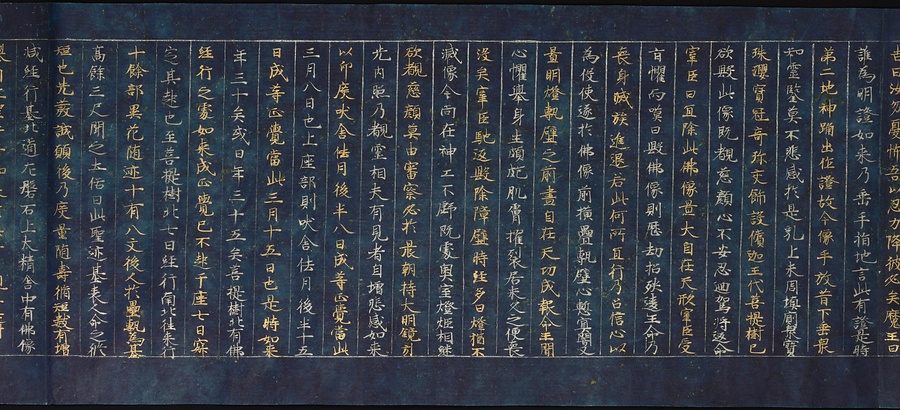 告曰汝勿憂怖吾以忍力降彼必矣魔王曰
誰為明證如来乃垂手指地言此有證是時
弟二地神踊出作證故今像手放昔下垂衆
知靈鑒莫不悲感於是乳上未周填廁衆寶
珠瓔寶冠奇珎交飾設償迦王伐菩提樹已
欲毀此像既覩慈顔心不安忍迴駕将返命
宰臣曰宜除此佛像置大自在天形宰臣受
旨懼而嘆曰毀佛像則歴劫招殃違王命乃
喪身滅族進退若此何所宜行乃召信心以
為役使遂於佛像前横疊甎壁心慙冥闇又
置明燈甎壁之前畫自在天功成報命王聞
心懼舉身生皰肌膚攫裂居未久之便喪
没矣宰臣馳返毀除障壁時経多日燈猶不
滅像今尚在神工不虧既處奥室燈炬相継
欲覩慈顔莫由審察必於晨朝持大明鏡引
光内照乃覩靈相夫有見者自増悲感如来
以印度吠舍佉月後半八日成等正覺當此
三月八日也上座部則吠舍佉月後半十五
日成等正覺當此三月十五日也是時如来
年三十矣或曰年三十五矣菩提樹北有佛
経行之處如来成正覺已不起于座七日寂
定其起也至菩提樹北七日経行南北往来行
十餘部異花随迹十有八文後人於此疊甎為基
高餘三尺聞之土俗曰此聖迹基表人命之脩
短也先發誠願後乃度量随壽脩短數有増
減経行基北道左磐石上大精舍中有佛像